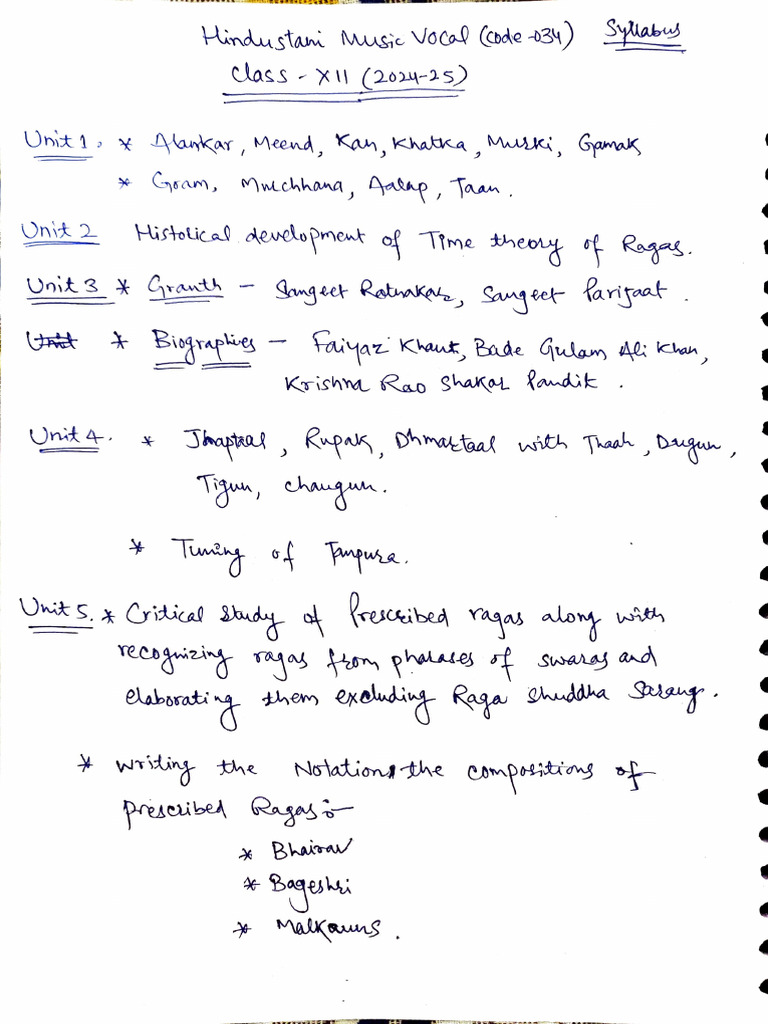 Hindustani Music Vocal (code-034) Syllabus
Class - XII (2024-25)
Unit 1. * Alankar, Meend, Kan, Khatka, Murki, Gamak
* Gram, Murchhana, Aalap, Taan.
Unit 2 Historical development of Time theory of Ragas.
Unit 3 * Granth - Sangeet Ratnakar, Sangeet Parijaat.
Unit * Biographies - Faiyaz Khan, Bade Gulam Ali Khan,
Krishna Rao Shakar Pandit.
Unit 4. * Jhaptaal, Rupak, Dhmartaal with Thaah, Dugun,
Tigun, Chaugun.
* Tuning of Tanpura.
Unit 5. * Critical Study of Prescribed ragas along with
recognizing ragas from pharases of swaras and
elaborating them excluding Raga Shuddha Sarang.
* Writing the Notations the compositions of
prescribed Ragas:-
* Bhairav
* Bageshri
* Malkauns.